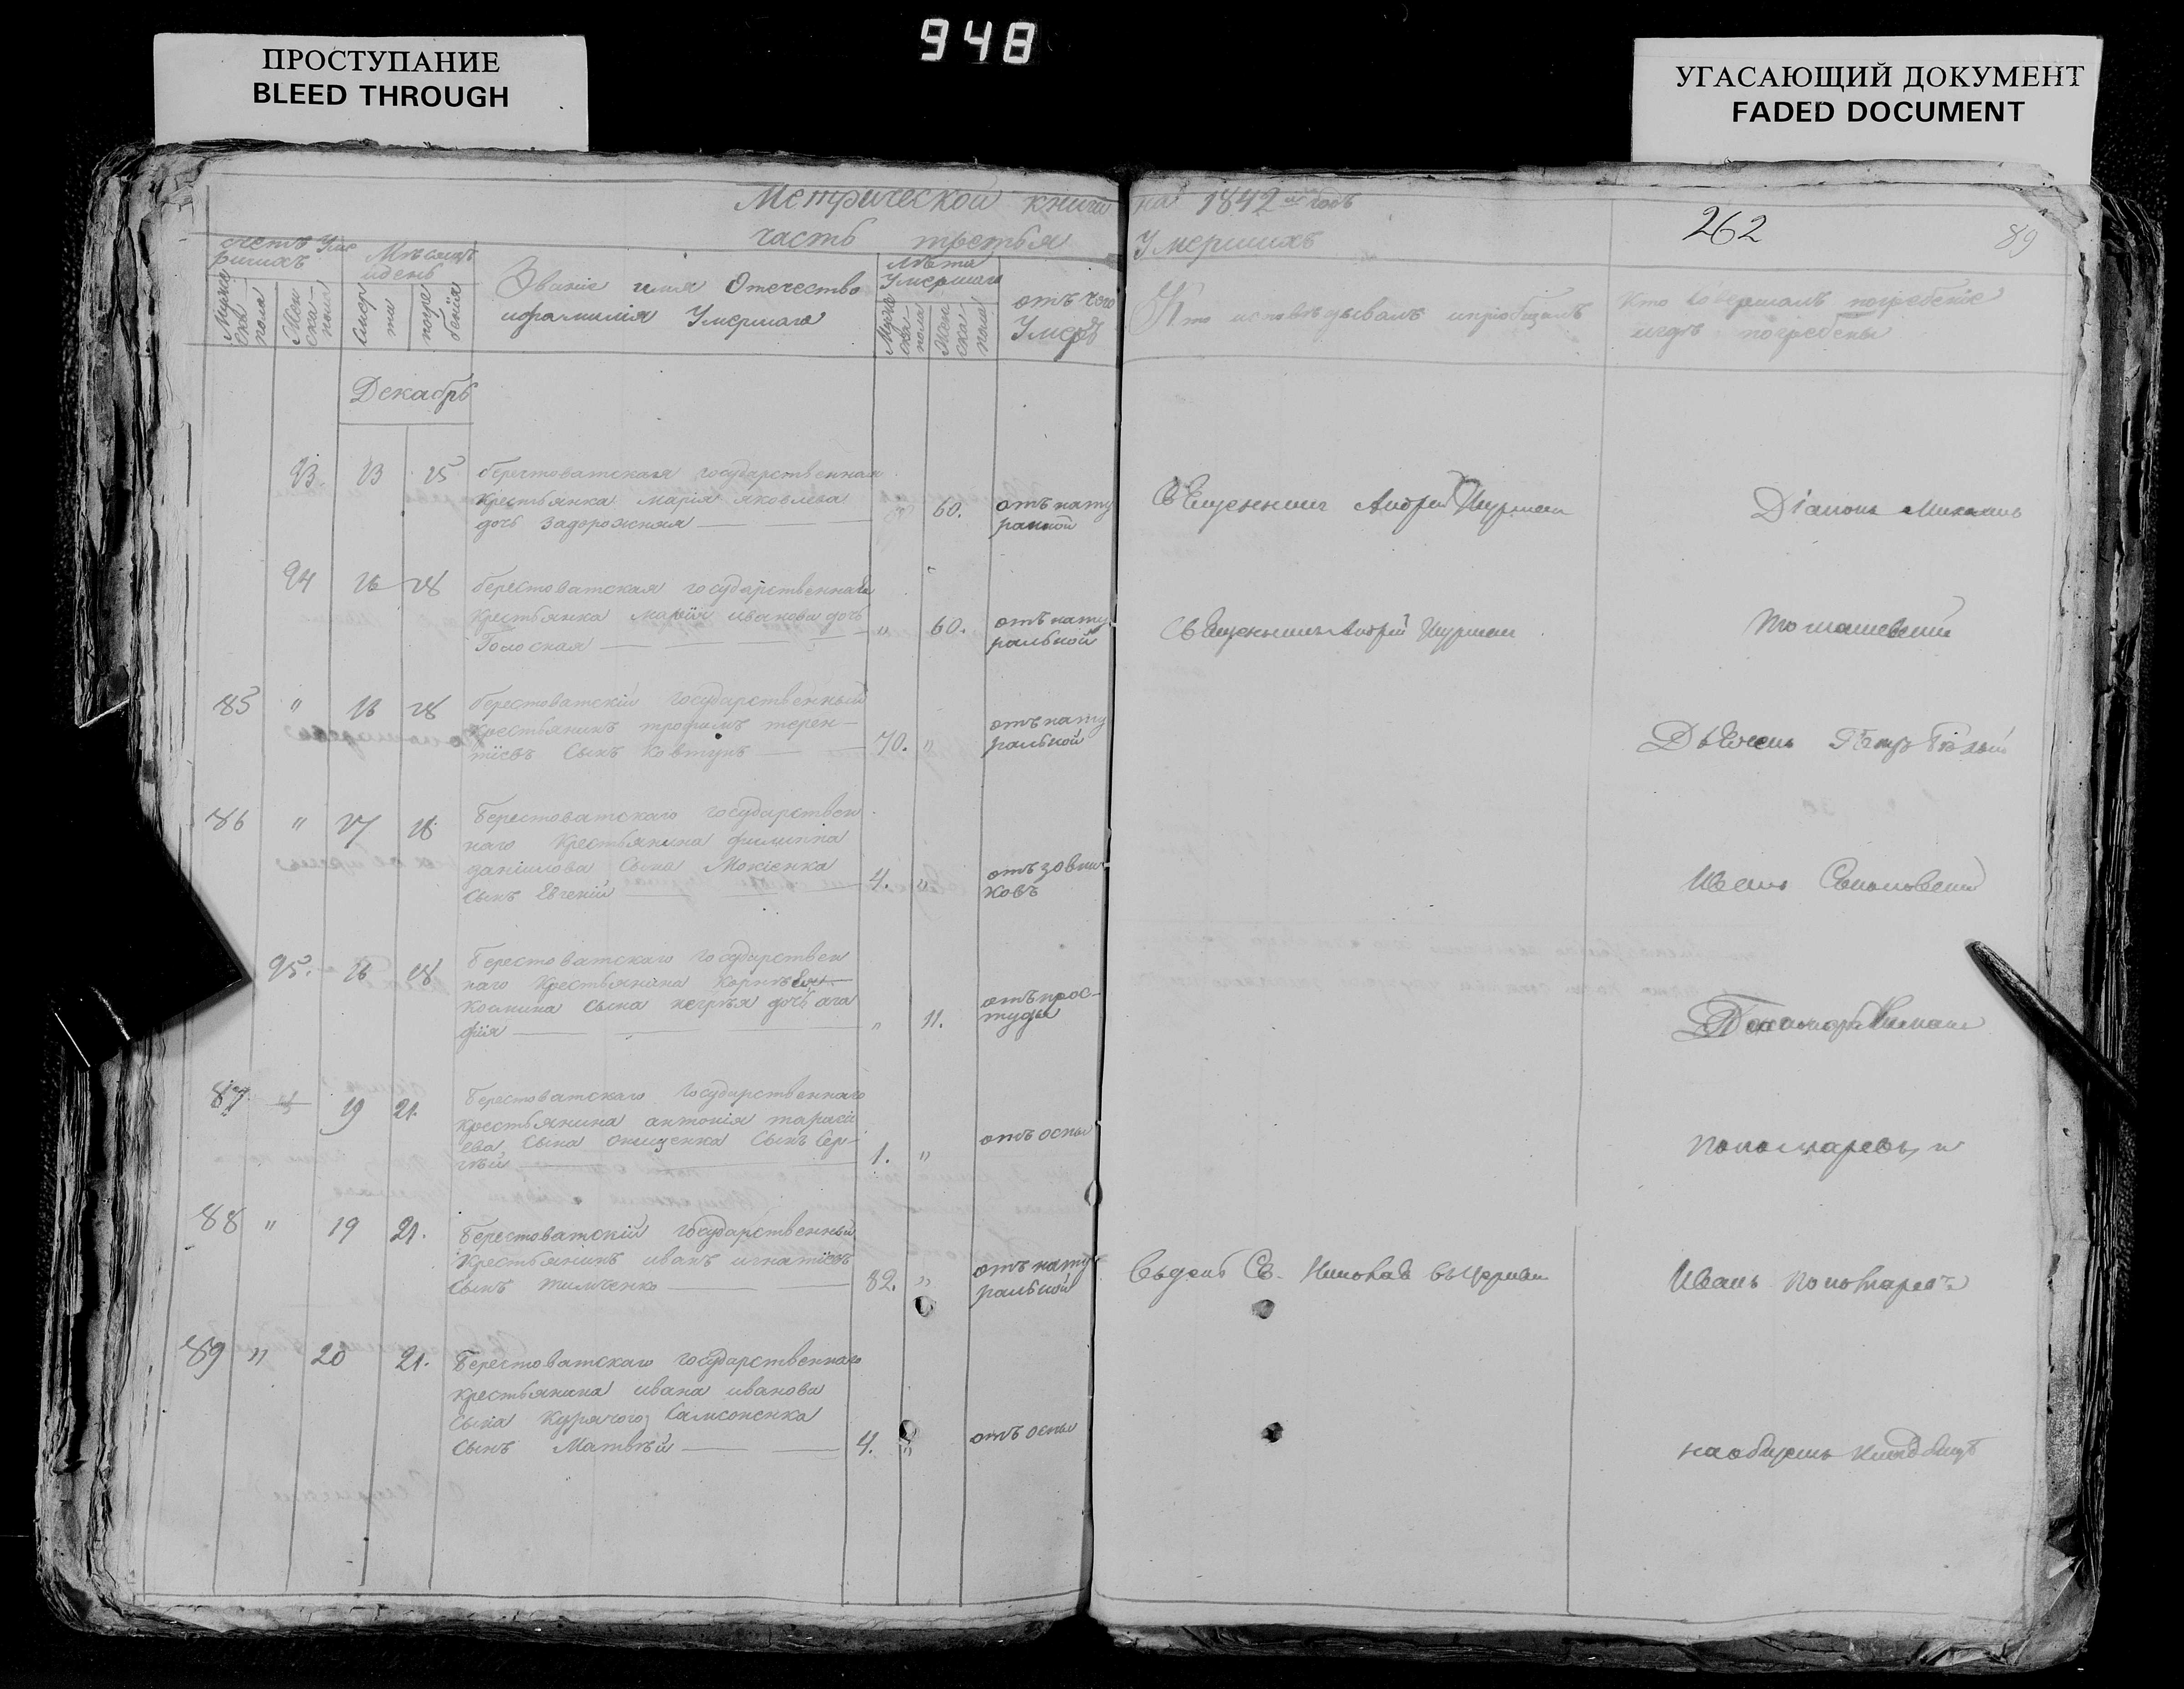 948
ПРОСТУПАНИЕ
BLEED THROUGH
УГАСАЮЩИЙ ДОКУМЕНТ
FADED DOCUMENT
Метрической книги на 1842 годъ
262
89
часть третья Умершихъ
Счетъ Уме
ршихъ
Мужеск пола
Женска пола
Мѣсяцъ
и день
Смерти
погребенія
Званіе имя Отечество
и фамилія Умершаго
Лѣта
Умершаго
Мужеска пола
Женска пола
отъ чего
Умеръ
Кто исповѣдывалъ и пріобщалъ
Кто совершалъ погребеніе
и гдѣ погребены
Декабрь
93. 23 25 берестоватская государственная
крестьянка марія яковлева
дочь задорожняя
60. отъ нату
ралной
Священникъ Андрей
Діаконъ Михаилъ
94 26 28 берестоватская государственная
крестьянка марія иванова дочь
60. отъ нату
ральной
Священникъ Андрей
85 " 28 берестоватскій государственный
крестьянинъ трофимъ терен-
тіевъ сынъ Ковтунъ
70. " отъ нату
ральной
Дьячекъ Петръ Бѣлый
86 " 27 28 берестоватскаго государствен
наго крестьянина филиппа
данилова сына Мокіенка
сынъ Евгеній
4. "
ковъ
Иванъ
95. 26 28 берестоватскаго государствен
наго крестьянина
сына негрѣя дочь ага
фія
" 11. отъ прос-
туды
87 19 21. берестоватскаго государственнаго
крестьянина антонія тарасі
ева сына онищенка сынъ Сер-
гѣй
1. " отъ оспы
пономаревъ, и
88 " 19 21. берестоватскій государственный
крестьянинъ иванъ игнатіевъ
сынъ тимченко
82. " отъ нату
ральной
Въ день Св. Николая въ церкви
Иванъ пономаревъ
89 " 20 21. Берестоватскаго государственнаго
крестьянина ивана иванова
сына Курячого Самсоненка
сынъ Матвѣй
4. " отъ оспы
на общемъ кладбищѣ